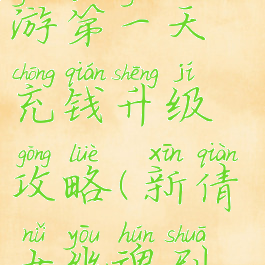 游第一天
chōng qián shēng jí
充钱升级
gōng lüè xīn qiàn
攻略(新倩
nǚ yōu hún shuā
女幽魂刷